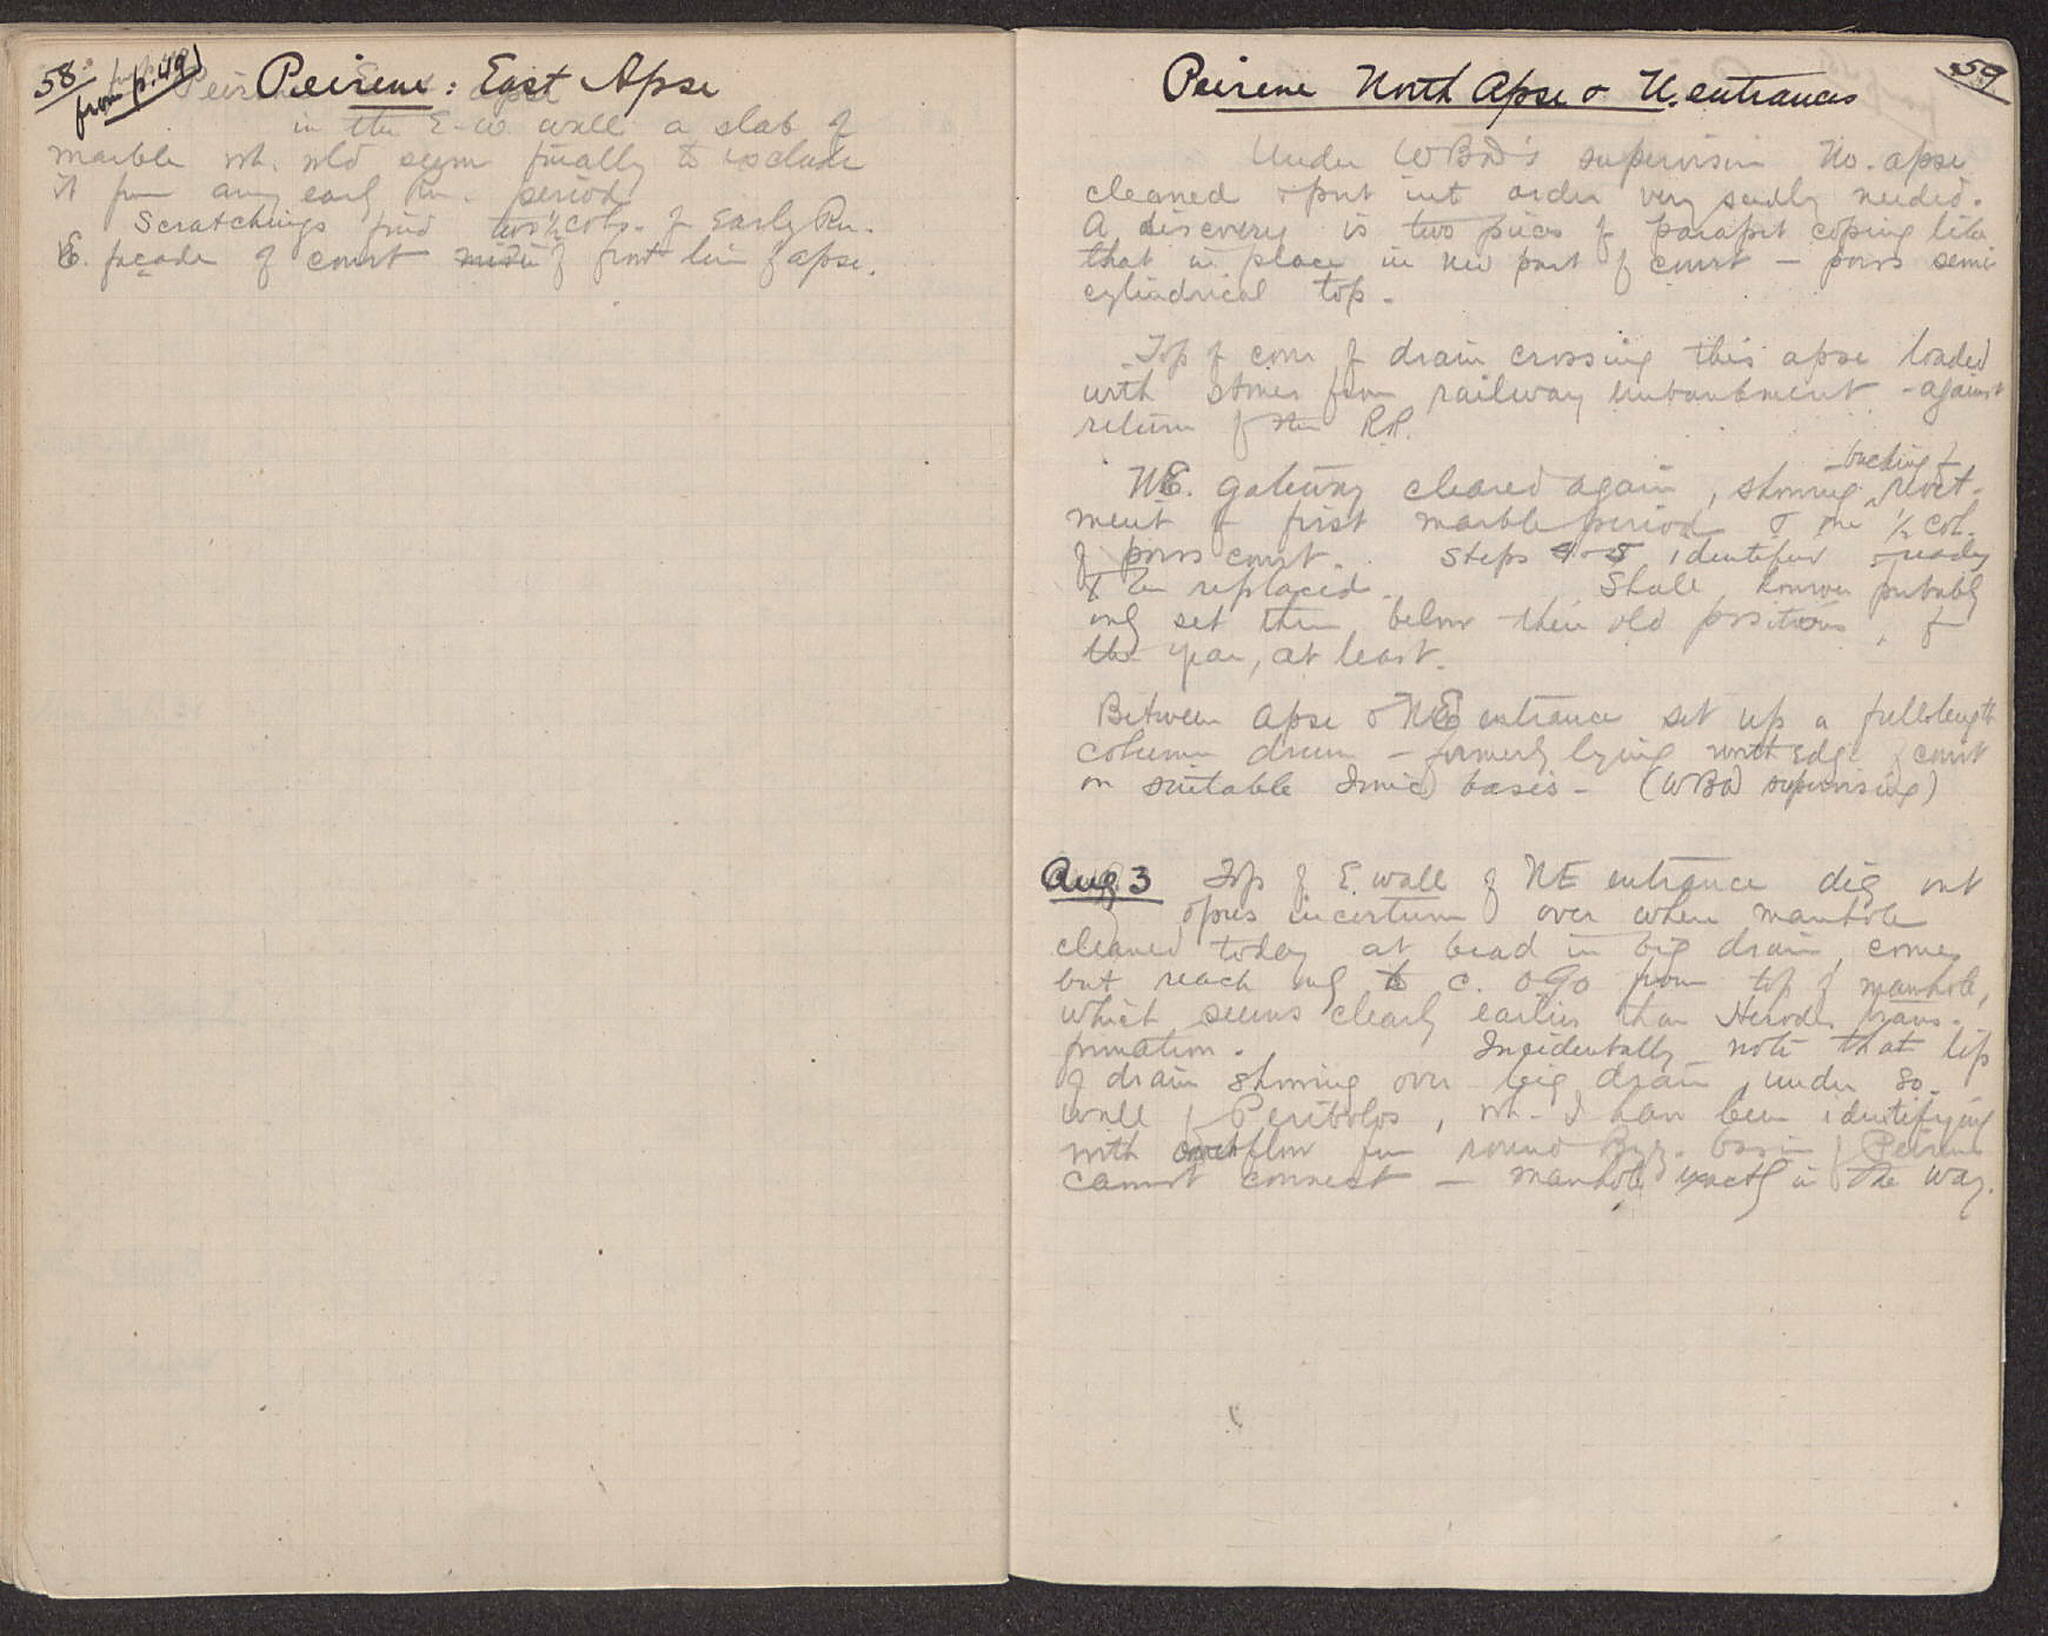 58
from p. 49)
Peirene: East Apse
in the E-W wall a slab of
marble wh. wld seem finally to exclude
it from any early Rn. period
Scratchings find two ½ cols. of Early Rn.
E. façade of court inside of front line of apse.
59
Peirene North Apse & N. entrances
Under WBD's supervision No. apse
cleaned & put into order very sadly needed.
A discovery is two pieces of parapet coping like
that in place in new part of court - poros semi-
cylindrical top.
Top of cover of drain crossing this apse loaded
with stones from railway embankment - against
return of the RR.
backing of
NE. gateway cleared again, showing revet-
ment of first marble period & one ½ col.
of poros court. Steps 4-5 identified & ready
to be replaced. Shall however probably
only set them below their old positions, for
the year, at least.
Between apse & NE entrance set up a full length
column drum - formerly lying north edge of court
on suitable Ionic basis - (WBD supervising)
Aug 3 Top of E. wall of NE entrance dig out
opus incertum over where manhole
cleaned today at bend in big drain, comes
but reach only to c. 090 from top of manhole,
which seems clearly earlier than Herodes trans-
formation. Incidentally note that lip
of drain showing over big drain, under So.
wall of Peribolos, wh. I have been identifying
with overflow from round Byz. basin of Peirene
cannot connect - manhole exactly in the way.